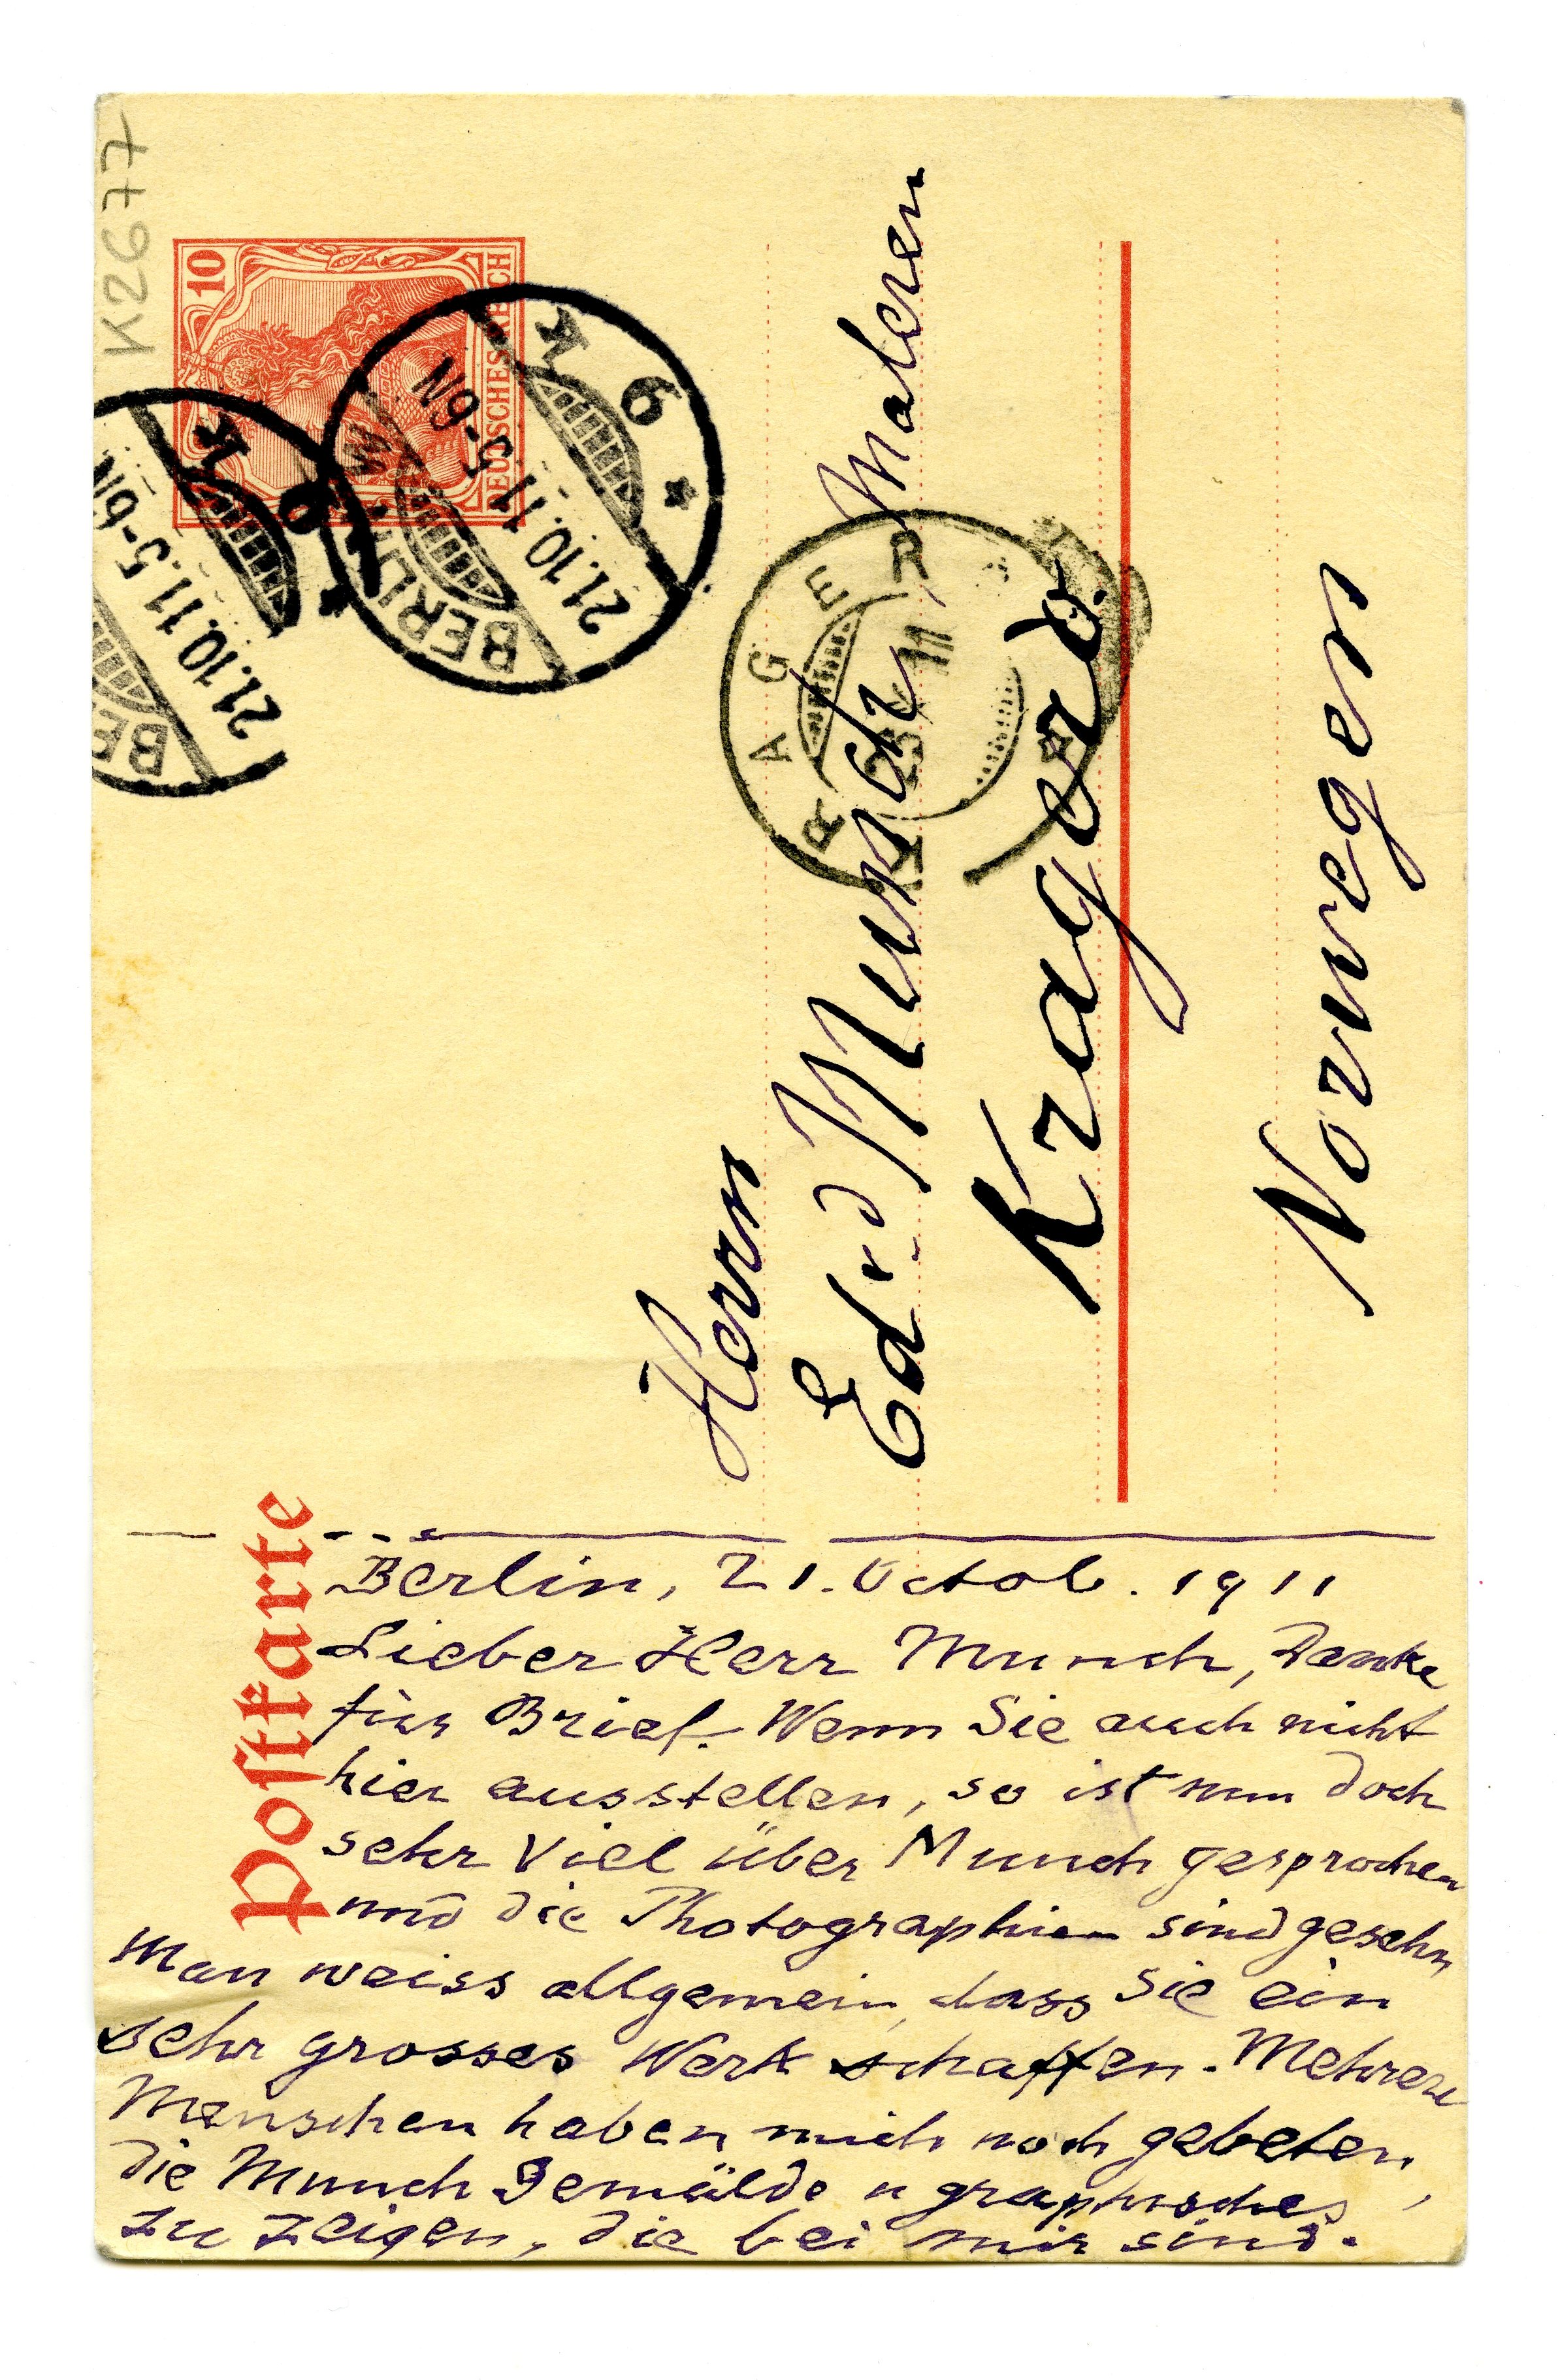 K2677
10
DEUTSCHES REICH
BERLIN
21.10.11.5-6N
6
BER
21.10.11.5-6N
6
RAGER
11
Postkarte
Herrn
Edvd Munch, Maleren
Kragerö.
Norwegen
Berlin, 21. Octob. 1911
Lieber Herr Munch, Danke
für Brief. Wenn Sie auch nicht
hier ausstellen, so ist nun doch
sehr viel über Munch gesprochen
und die Photographien sind gesehn,
Man weiss allgemein, dass Sie ein
sehr grosses Werk schaffen. Mehrere
Menschen haben mich noch gebeten,
die Munch Gemälde u graphisches,
zu zeigen, die bei mir sind.